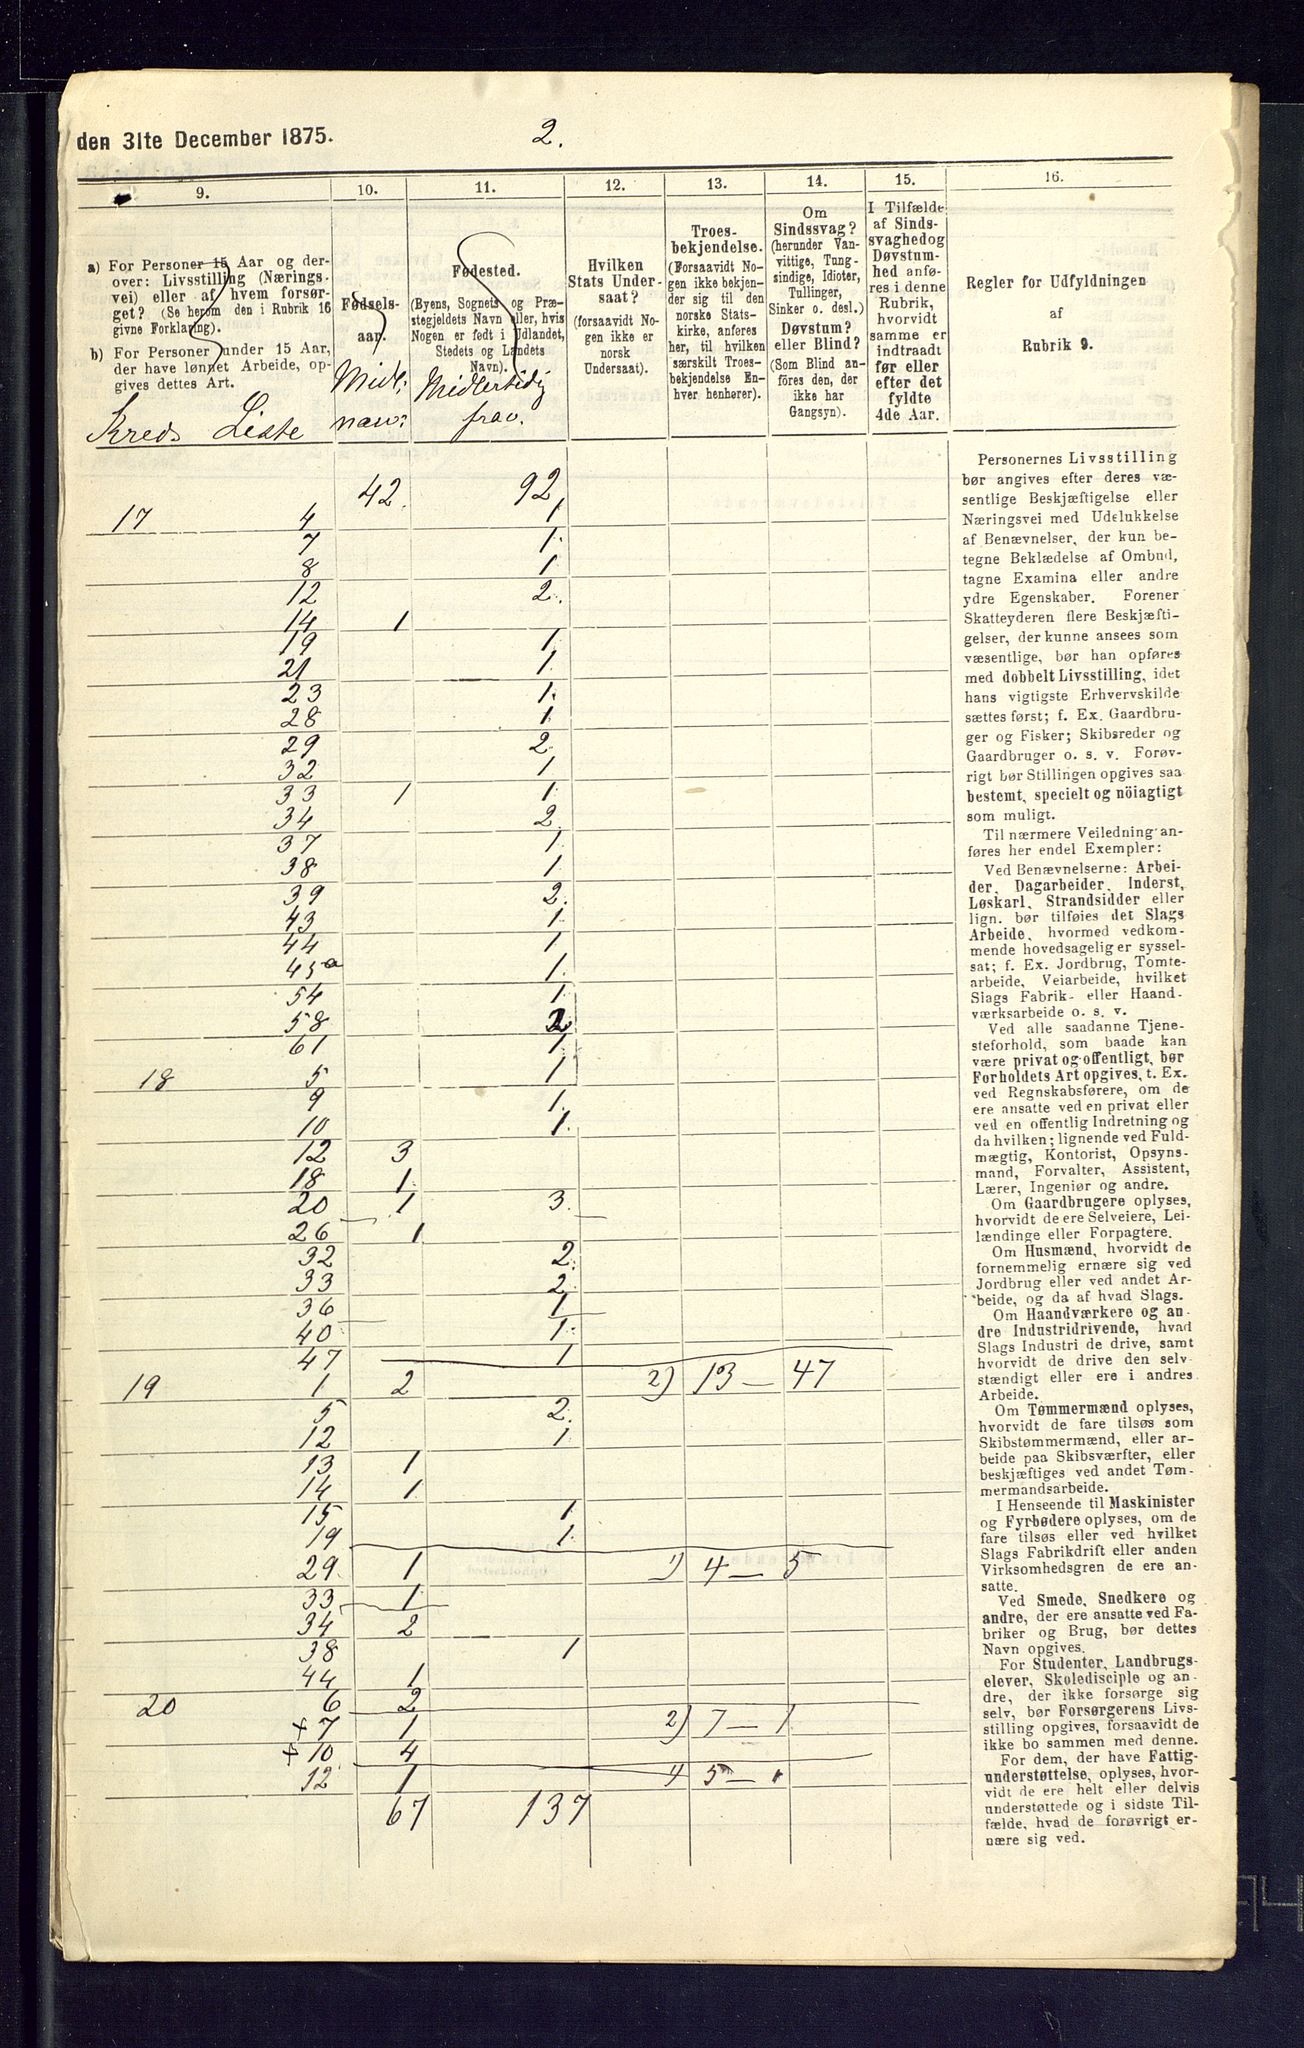 den 31te December 1875.
2.
9.
10.
11.
12.
13.
14.
15.
16.
a) For Personer 15 Aar og der-
over: Livsstilling (Nærings-
vei) eller af hvem forsør-
get? (Se herom den i Rubrik 16
givne Forklaring).
b) For Personer under 15 Aar,
der have lønnet Arbeide, op-
gives dettes Art.
Kreds Liste
Fødsels-
aar.
Midl:
næv:
Fødested.
(Byens, Sognets og Præ-
stegjeldets Navn eller, hvis
Nogen er født i Udlandet,
Stedets og Landets
Navn).
Midlertidig
frav.
Hvilken
Stats Under-
saat?
(forsaavidt No-
gen ikke er
norsk
Undersaat).
Troes-
bekjendelse.
(Forsaavidt No-
gen ikke bekjen-
der sig til den
norske Stats-
kirke, anføres
her, til hvilken
særskilt Troes-
bekjendelse En-
hver henhører).
Om
Sindssvag?
(herunder Van-
vittige, Tung-
sindige, Idioter,
Tullinger,
Sinker o. desl.)
Døvstum?
eller Blind?
(Som Blind an-
føres den, der
ikke har
Gangsyn).
I Tilfælde
af Sinds-
svaghed og
Døvstum-
hed anfø-
res i denne
Rubrik,
hvorvidt
samme er
indtraadt
før eller
efter det
fyldte
4de Aar.
Regler for Udfyldningen
af
Rubrik 9.
42. 92.
17 4 1
7 1.
8 1
12 2.
14 1
19 1.
21 1.
23 1.
28 1.
29 2.
32 1
33 1 1.
34 2.
37 1.
38 1.
39 2.
43 1.
44 1
45a 1.
54 1.
58 2.
61 1.
18 5 1
9 1.
10 1.
12 3
18 1.
20 1 3.
26 1
32 2.
33 2.
36 1
40 1.
47 1
19 1 2 2) 13 — 47
5 2.
12 1
13 1
14 1.
15 1.
19 1.
29. 1 1) 4 — 5
33 1
34 2
38 1
44 1
20 6 2
+ 7 1 2) 7 — 1
+ 10 4
12 1 1) 5 —
67 137
Personernes Livsstilling
bør angives efter deres væ-
sentlige Beskjæftigelse eller
Næringsvei med Udelukkelse
af Benævnelser, der kun be-
tegne Beklædelse af Ombud,
tagne Examina eller andre
ydre Egenskaber. Forener
Skatteyderen flere Beskjæfti-
gelser, der kunne ansees som
væsentlige, bør han opføres
med dobbelt Livsstilling, idet
hans vigtigste Erhvervskilde
sættes først; f. Ex. Gaardbru-
ger og Fisker; Skibsreder og
Gaardbruger o. s. v. Forøv-
rigt bør Stillingen opgives saa
bestemt, specielt og nöiagtigt
som muligt.
Til nærmere Veiledning an-
føres her endel Exempler:
Ved Benævnelserne: Arbei-
der, Dagarbeider, Inderst,
Løskarl, Strandsidder eller
lign. bør tilføies det Slags
Arbeide, hvormed vedkom-
mende hovedsagelig er syssel-
sat; f. Ex. Jordbrug, Tomte-
arbeide, Veiarbeide, hvilket
Slags Fabrik- eller Haand-
værksarbeide o. s. v.
Ved alle saadanne Tjene-
steforhold, som baade kan
være privat og offentligt, bør
Forholdets Art opgives, t. Ex.
ved Regnskabsførere, om de
ere ansatte ved en privat eller
ved en offentlig Indretning og
da hvilken; lignende ved Fuld-
mægtig, Kontorist, Opsyns-
mand, Forvalter, Assistent,
Lærer, Ingeniør og andre.
Om Gaardbrugere oplyses,
hvorvidt de ere Selveiere, Lei-
lændinge eller Forpagtere.
Om Husmænd, hvorvidt de
fornemmelig ernære sig ved
Jordbrug eller ved andet Ar-
beide, og da af hvad Slags.
Om Haandværkere og an-
dre Industridrivende, hvad
Slags Industri de drive, samt
hvorvidt de drive den selv-
stændigt eller ere i andres
Arbeide.
Om Tømmermænd oplyses,
hvorvidt de fare tilsøs som
Skibstømmermænd, eller ar-
beide paa Skibsværfter, eller
beskjæftiges ved andet Tøm-
mermandsarbeide.
I Henseende til Maskinister
og Fyrbødere oplyses, om de
fare tilsøs eller ved hvilket
Slags Fabrikdrift eller anden
Virksomhedsgren de ere an-
satte.
Ved Smede, Snedkere og
andre, der ere ansatte ved Fa-
briker og Brug, bør dettes
Navn opgives.
For Studenter, Landbrugs-
elever, Skoledisciple og an-
dre, der ikke forsørge sig
selv, bør Forsørgerens Livs-
stilling opgives, forsaavidt de
ikke bo sammen med denne.
For dem, der have Fattig-
understøttelse, oplyses, hvor-
vidt de ere helt eller delvis
understøttede og i sidste Til-
fælde, hvad de forøvrigt er-
nære sig ved.